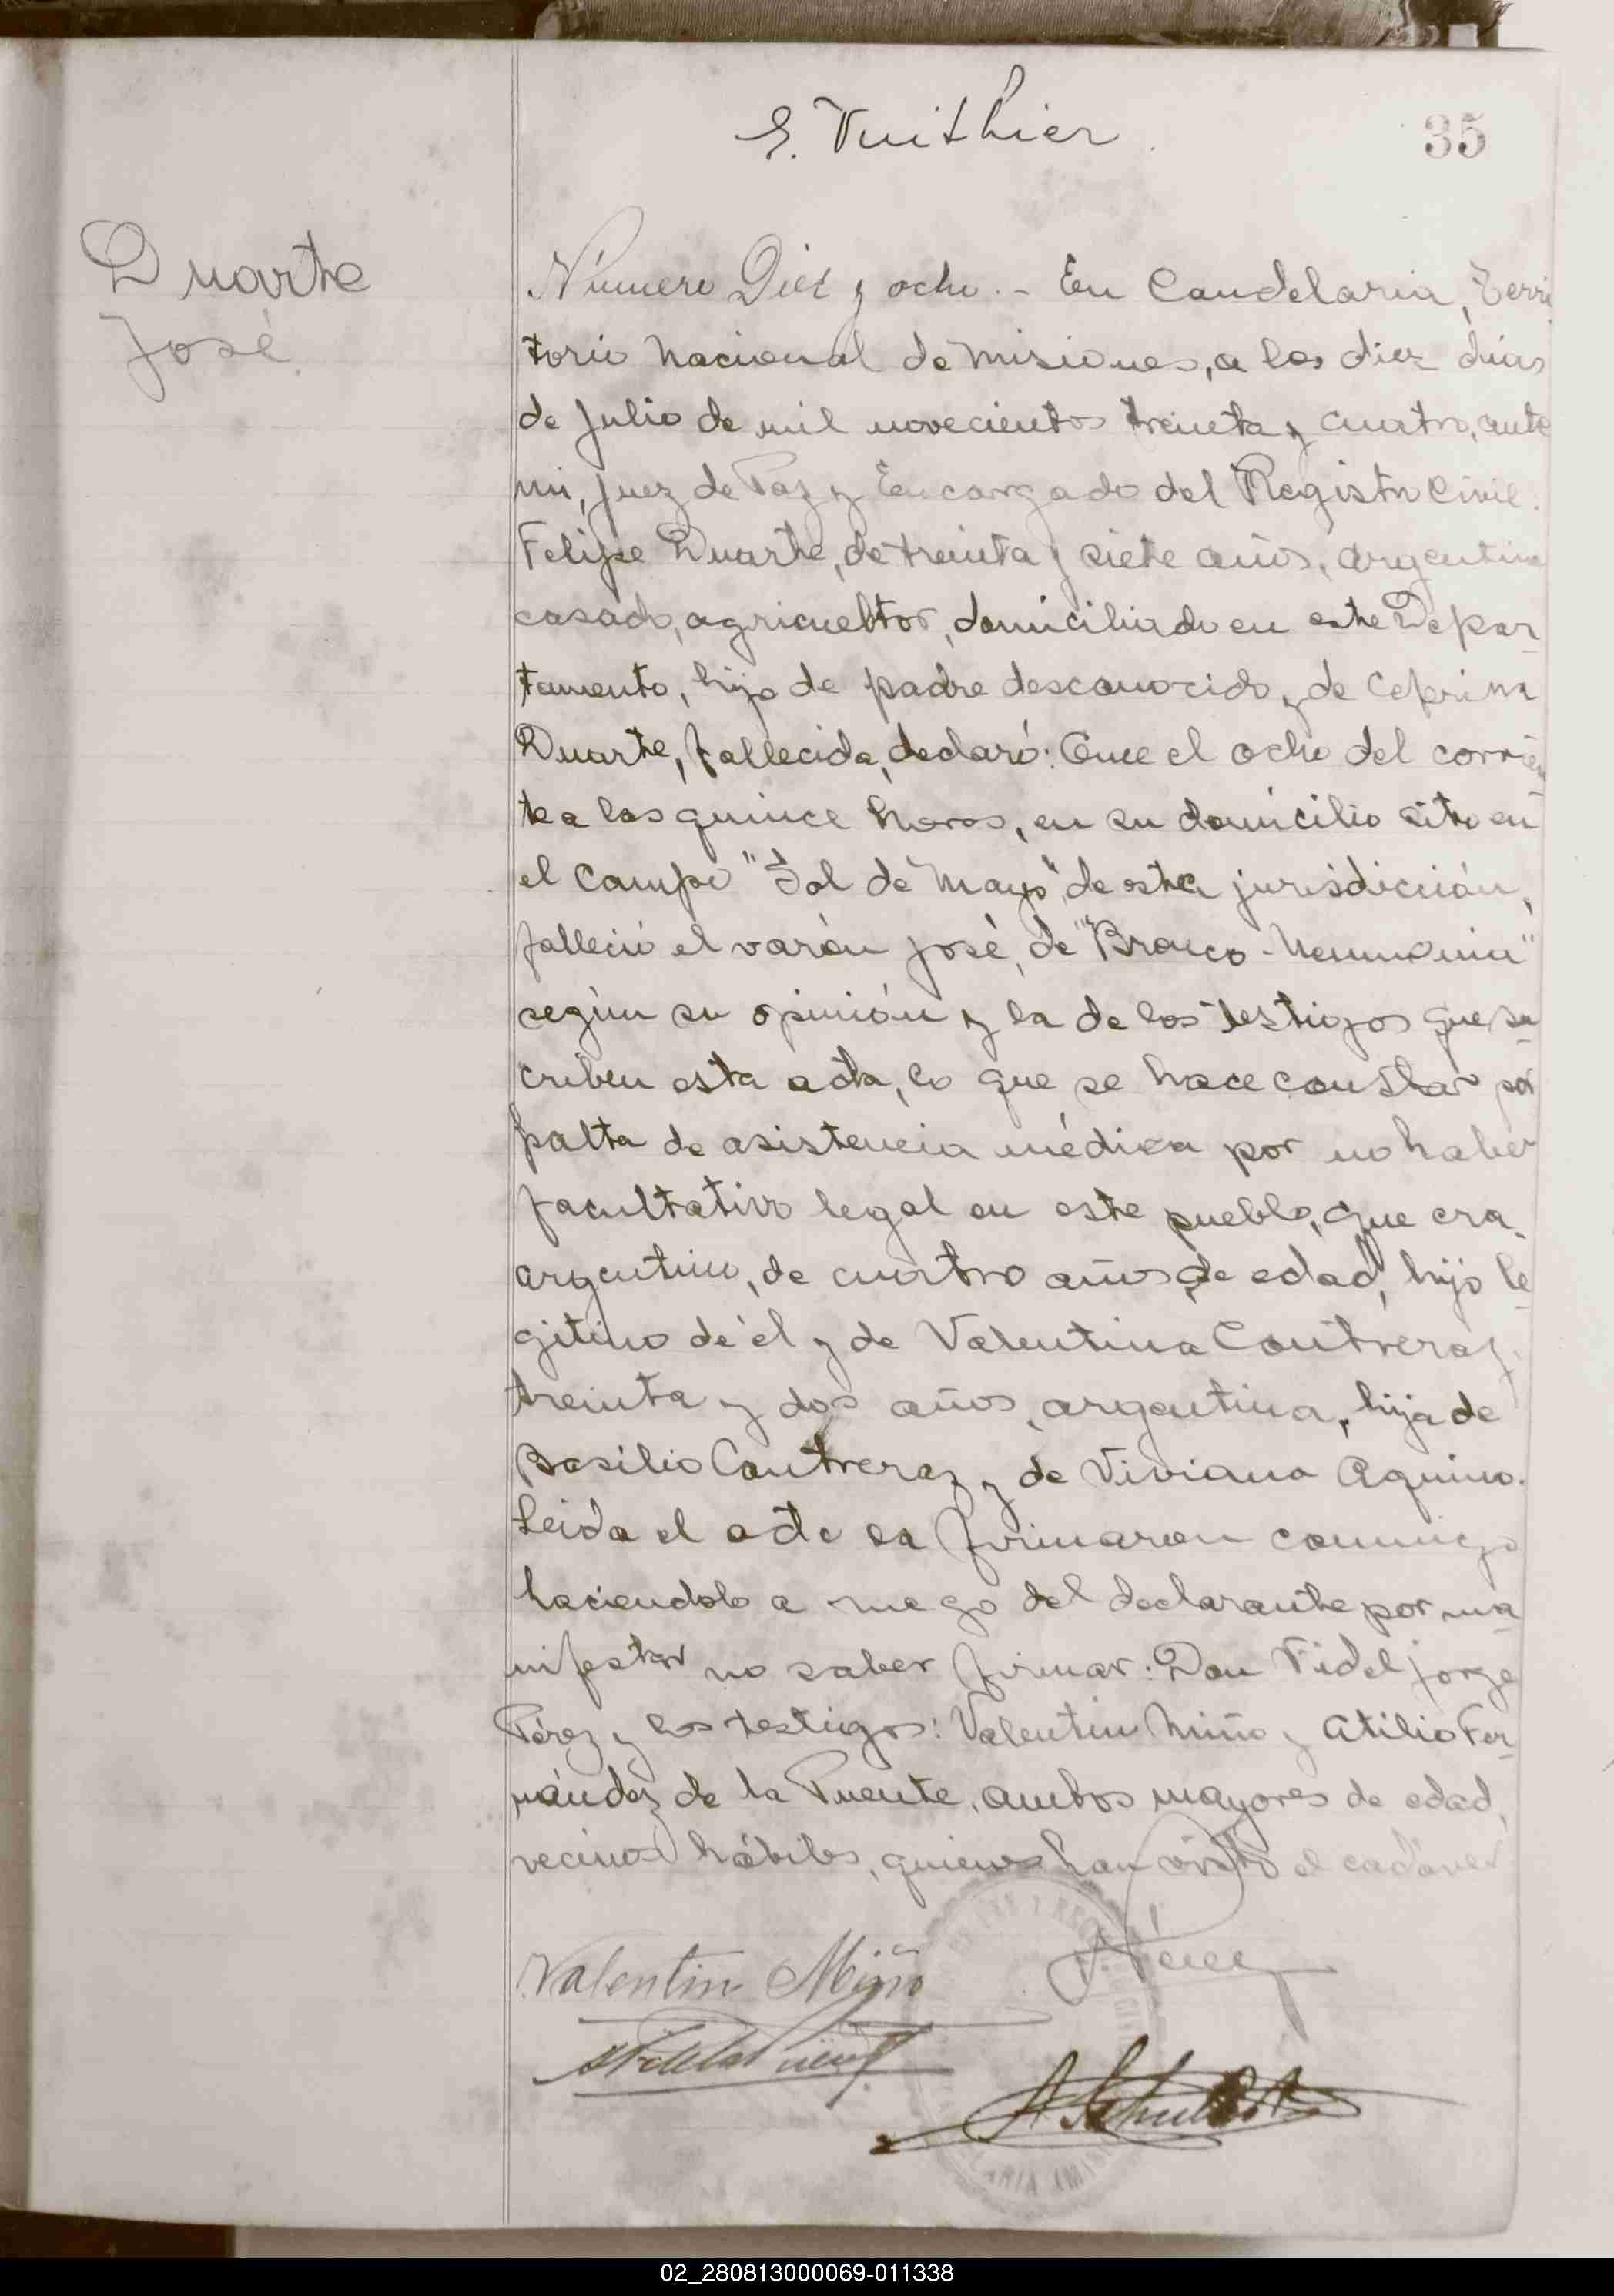 E. Vuithier
35
Duarte
José
Número Diez y ocho.- En Candelaria, Terri
torio Nacional de Misiones, a los diez días
de Julio de mil novecientos treinta y cuatro, ante
mi, Juez de Paz y Encargado del Registro Civil.
Felipe Duarte, de treinta y siete años, argentino
casado, agricultor, domiciliado en este Depar-
tamento, hijo de padre desconocido y de Ceferina
Duarte, fallecida, declaró: Que el ocho del corrien-
te a las quince horas, en su domicilio sito en
el Campo "Sol de Mayo", de esta jurisdicción,
falleció el varón José, de "Bronco-Neumonia"
según su opinión y la de los testigos que su-
criben esta acta, lo que se hace constar por
falta de asistencia médica por no haber
facultativo legal en este pueblo, que era
argentino, de cuatro años de edad, hijo le-
gitimo de él y de Valentina Contreraz,
treinta y dos años, argentina, hija de
Basilio Contreraz y de Viviana Aquino.
Leida el acta la firmaron conmigo
haciendolo a ruego del declarante por ma-
nifestar no saber firmar: Don Fidel Jorge
Pérez y los testigos: Valentin Miño y Atilio Fer-
nández de la Puente, ambos mayores de edad,
vecinos hábiles, quienes han visto el cadáver
Valentin Miño
J. Pérez
A F de la Puente
A Schubert
02_280813000069-011338